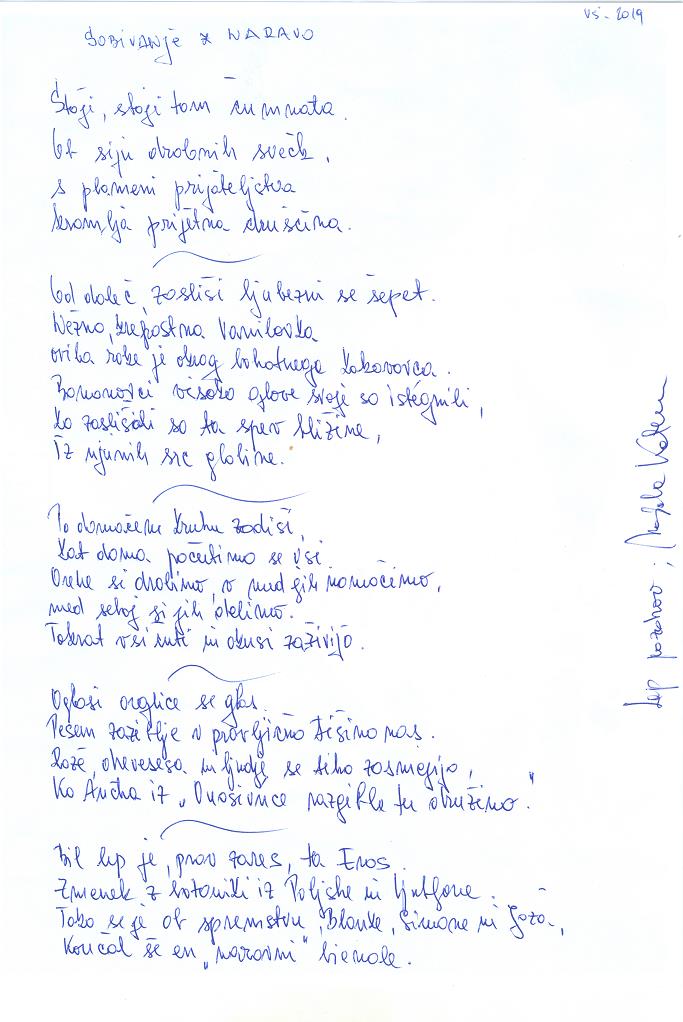 VŠ - 2019
SOBIVANJE Z NARAVO
Stoji, stoji tam čumnata.
Ob siju drobnih svečk,
s plameni prijateljstva
kramlja prijetna druščina.
Od daleč, zasliši ljubezni se šepet.
Nežno, krepostna Vanilovka
ovila roke je okog bohotnega Kakavovca.
Bananovci visoko glave svoje so istegnili,
ko zaslišali so ta spev bližine,
iz njunih src globine.
Po domačem kruhu zadiši,
kot doma počutimo se vsi.
Orehe si drobimo, v med jih namočimo,
med seboj si jih delimo.
Tokrat vsi čuti in okusi zaživijo.
Oglasi orglice se glas.
Pesem zaziblje v pravljično tišino nas.
Rože, drevesa in ljudje se tiho zasmejijo,
ko Ančka iz „ razgiblje to družino."
Bil lep je, prav zares, ta Eros.
Zmenek z botaniki iz Poljske in Ljubljane.
Tako se je ob spremstvu, Blanke, Simone in Joža,
končal še en „naravni" bienale.
Lep pozdrav;